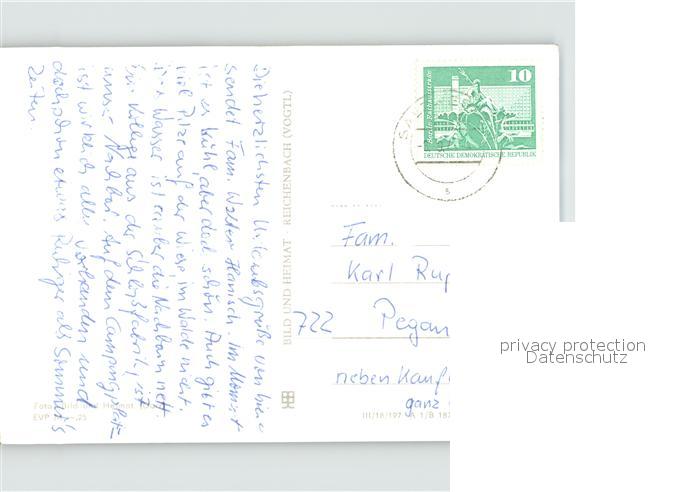 Die herzlichsten Urlaubsgrüße von hier
sendet Fam. Walter Hanisch. Im Moment
ist es kühl, aber doch schön. Auch gibt es
viel Pilze auf der Wiese, im Walde nicht.
Das Wasser ist sauber die Nachbarn nett.
Ein Kollege aus der
unser Nachbar. Auf dem Campingplatz
ist wirklich alles vorhanden und
doch schon etwas Ruhiger als Sommers
Zeiten.
BILD UND HEIMAT · REICHENBACH (VOGTL)
Foto: Bild und Heimat
EVP
III/18/197 A 1/B 18
10
Berlin Rathausstraße
DEUTSCHE DEMOKRATISCHE REPUBLIK
Fam.
Karl Rug
722 Pegau
neben Kauf
ganz
privacy protection
Datenschutz